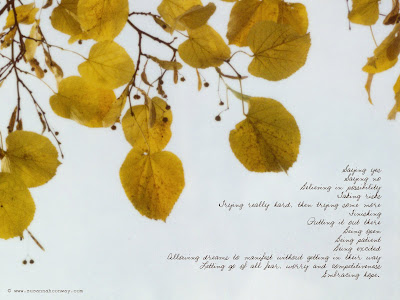 Saying yes
Saying no
Believing in possibility
Taking risks
Trying really hard, then trying some more
Finishing
Putting it out there
Being open
Being patient
Being excited
Allowing dreams to manifest without getting in their way
Letting go of all fear, worry and competitiveness
Embracing hope.
© www.susannahconway.com